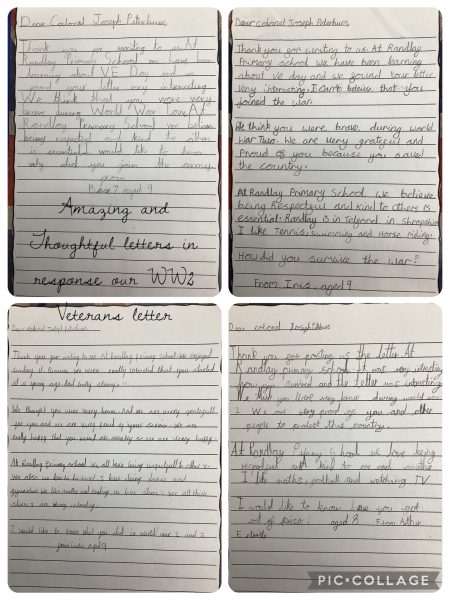 Dear Colonel Joseph Peterburs,
Thank you for writing to us. At
Randlay Primary School we have been
learning about VE Day and we
found your letter very interesting.
We think that you were very
brave during World War two. At
Randlay Primary School we believe
being respectful and kind to others
is essential. would like to know
why did you join the army.
from
aged 9
Amazing and
Thoughtful letters in
response our WW2
Veterans letter
Dear colonel Joseph Peterburs,
Thank you for writing to us. At Randlay
Primary school we have been learning
about Ve day and we found your letter
very interesting. I can't believe that you
joined the war.
We think you were brave during world
war Two. We are very grateful and
Proud of you because you saved
the country.
At Randlay Primary School we believe
being Respectful and kind to others is
essential. Randlay is in Telford in Shropshire
I like Tennis, swimming and Horse Riding.
How did you survive the war?
From Iris, aged 9
Thank you for writing to us. At Randlay primary school we enjoyed
reading it because we were really interested that you started
at a young age
We thought you were very brave. And we are very
for you and we are very proud of your service. We are
really happy that you saved our country so we are very happy.
At Randlay primary school we all love being respectful to others
I love dance and
I would like to know what you did in world war 1 and 2
aged 9
Dear colonel Joseph
Thank you for posting us the letter At
Randlay primary school It was very interesting
how you survived and the letter was interesting
We think you were very brave during world war
2 We are very proud of you and other
people to protect this country.
At Randlay Primary School we love being
respectful and kind to one each
I like maths, football and watching TV
I would like to know how you got
out of aged 8 From Arthur
PIC•COLLAGE